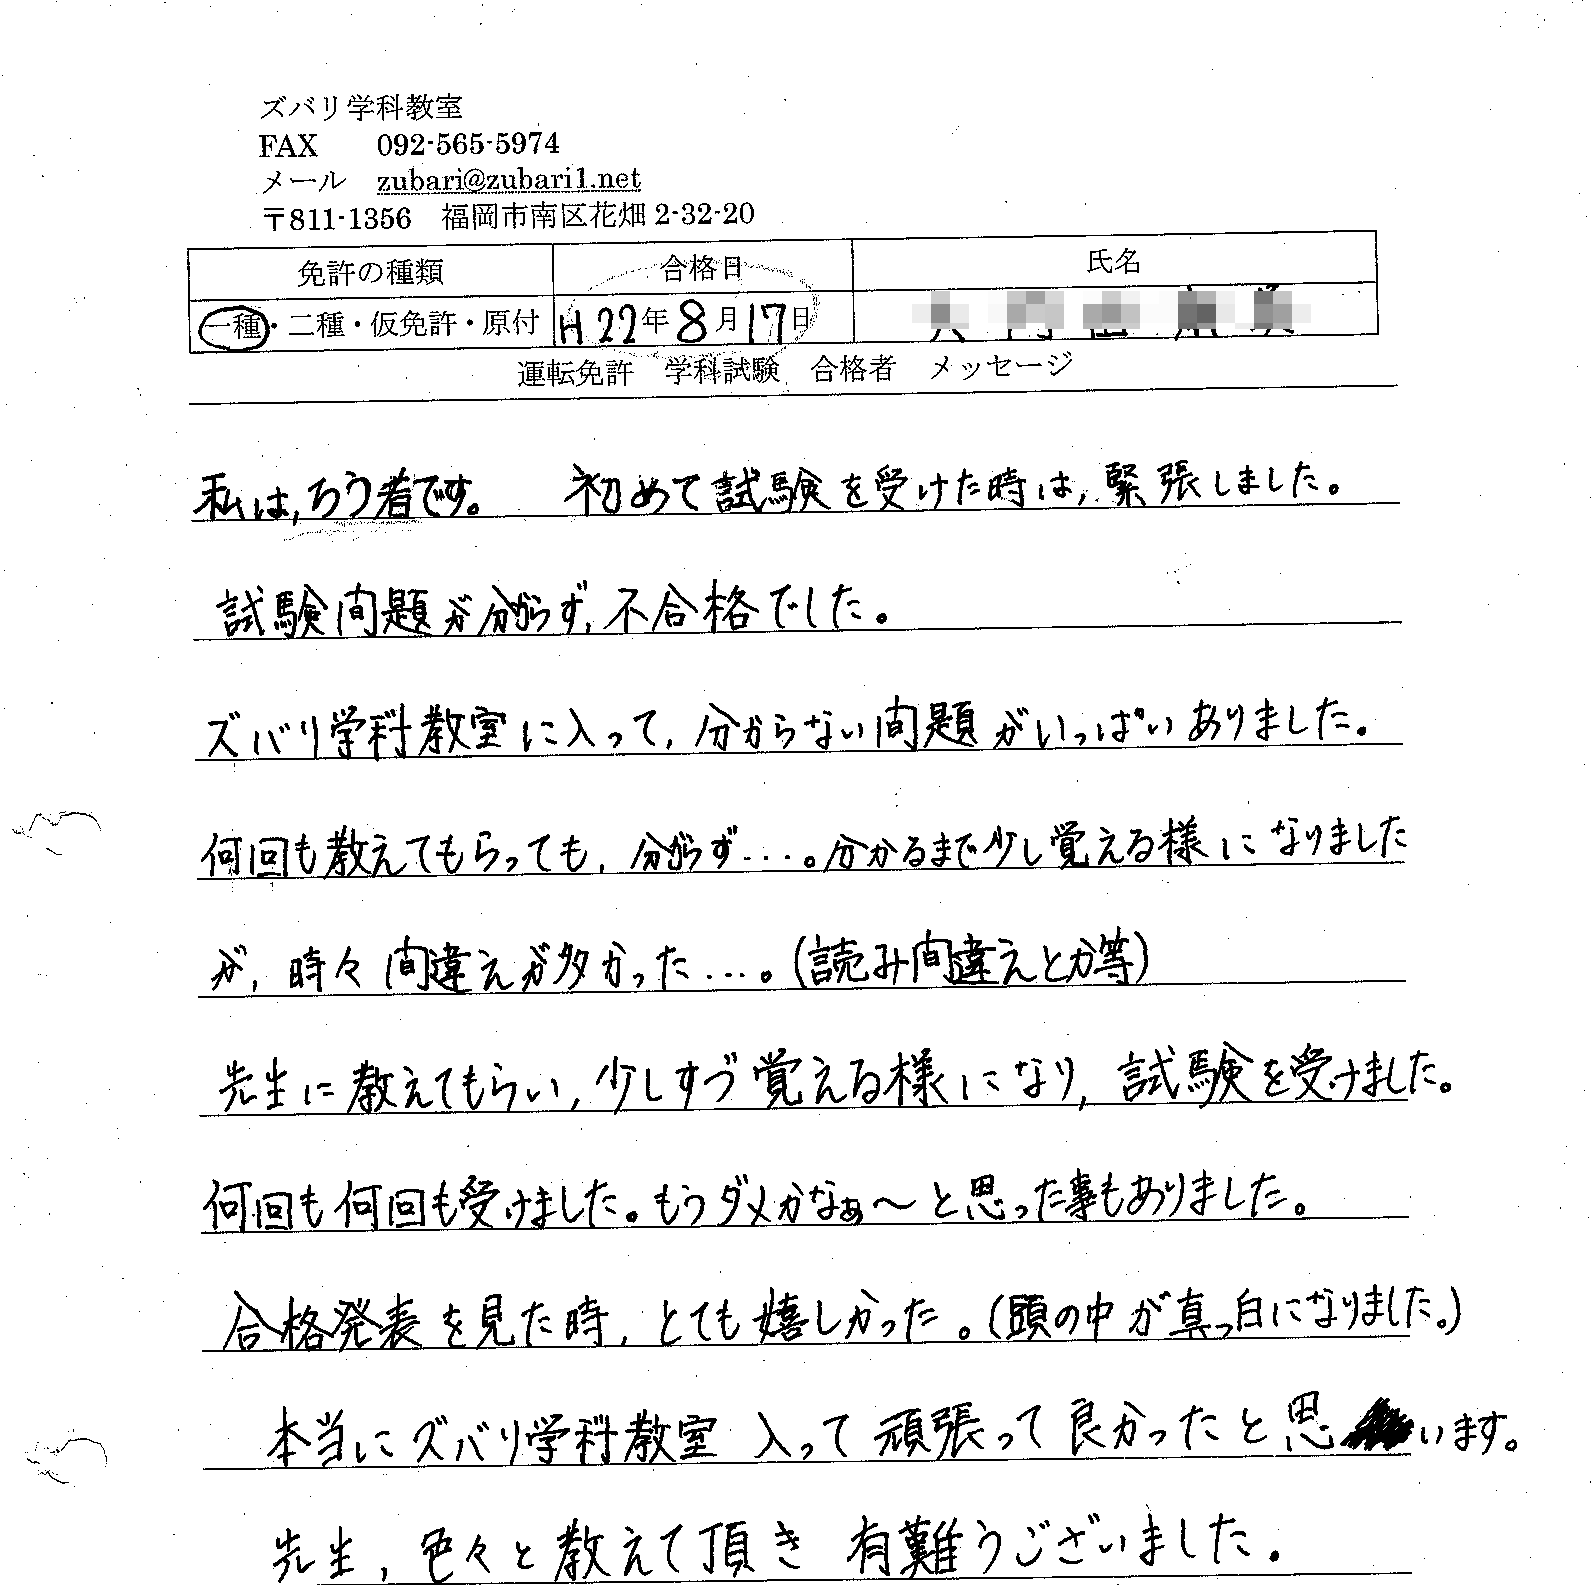 ズバリ学科教室
FAX 092-565-5974
メール zubari@zubari1.net
〒811-1356 福岡市南区花畑 2-32-20
免許の種類 合格日 氏名
一種・二種・仮免許・原付 H22年8月17日
運転免許 学科試験 合格者 メッセージ
私は,ろう者です。 初めて試験を受けた時は,緊張しました。
試験問題が分からず,不合格でした。
ズバリ学科教室に入って,分からない問題がいっぱいありました。
何回も教えてもらっても,分からず…。分かるまで少し覚える様になりました
が,時々間違えが多かった…。(読み間違えとか等)
先生に教えてもらい,少しずつ覚える様になり,試験を受けました。
何回も何回も受けました。もうダメかなぁ〜と思った事もありました。
合格発表を見た時,とても嬉しかった。(頭の中が真っ白になりました。)
本当にズバリ学科教室 入って頑張って良かったと思います。
先生,色々と教えて頂き 有難うございました。